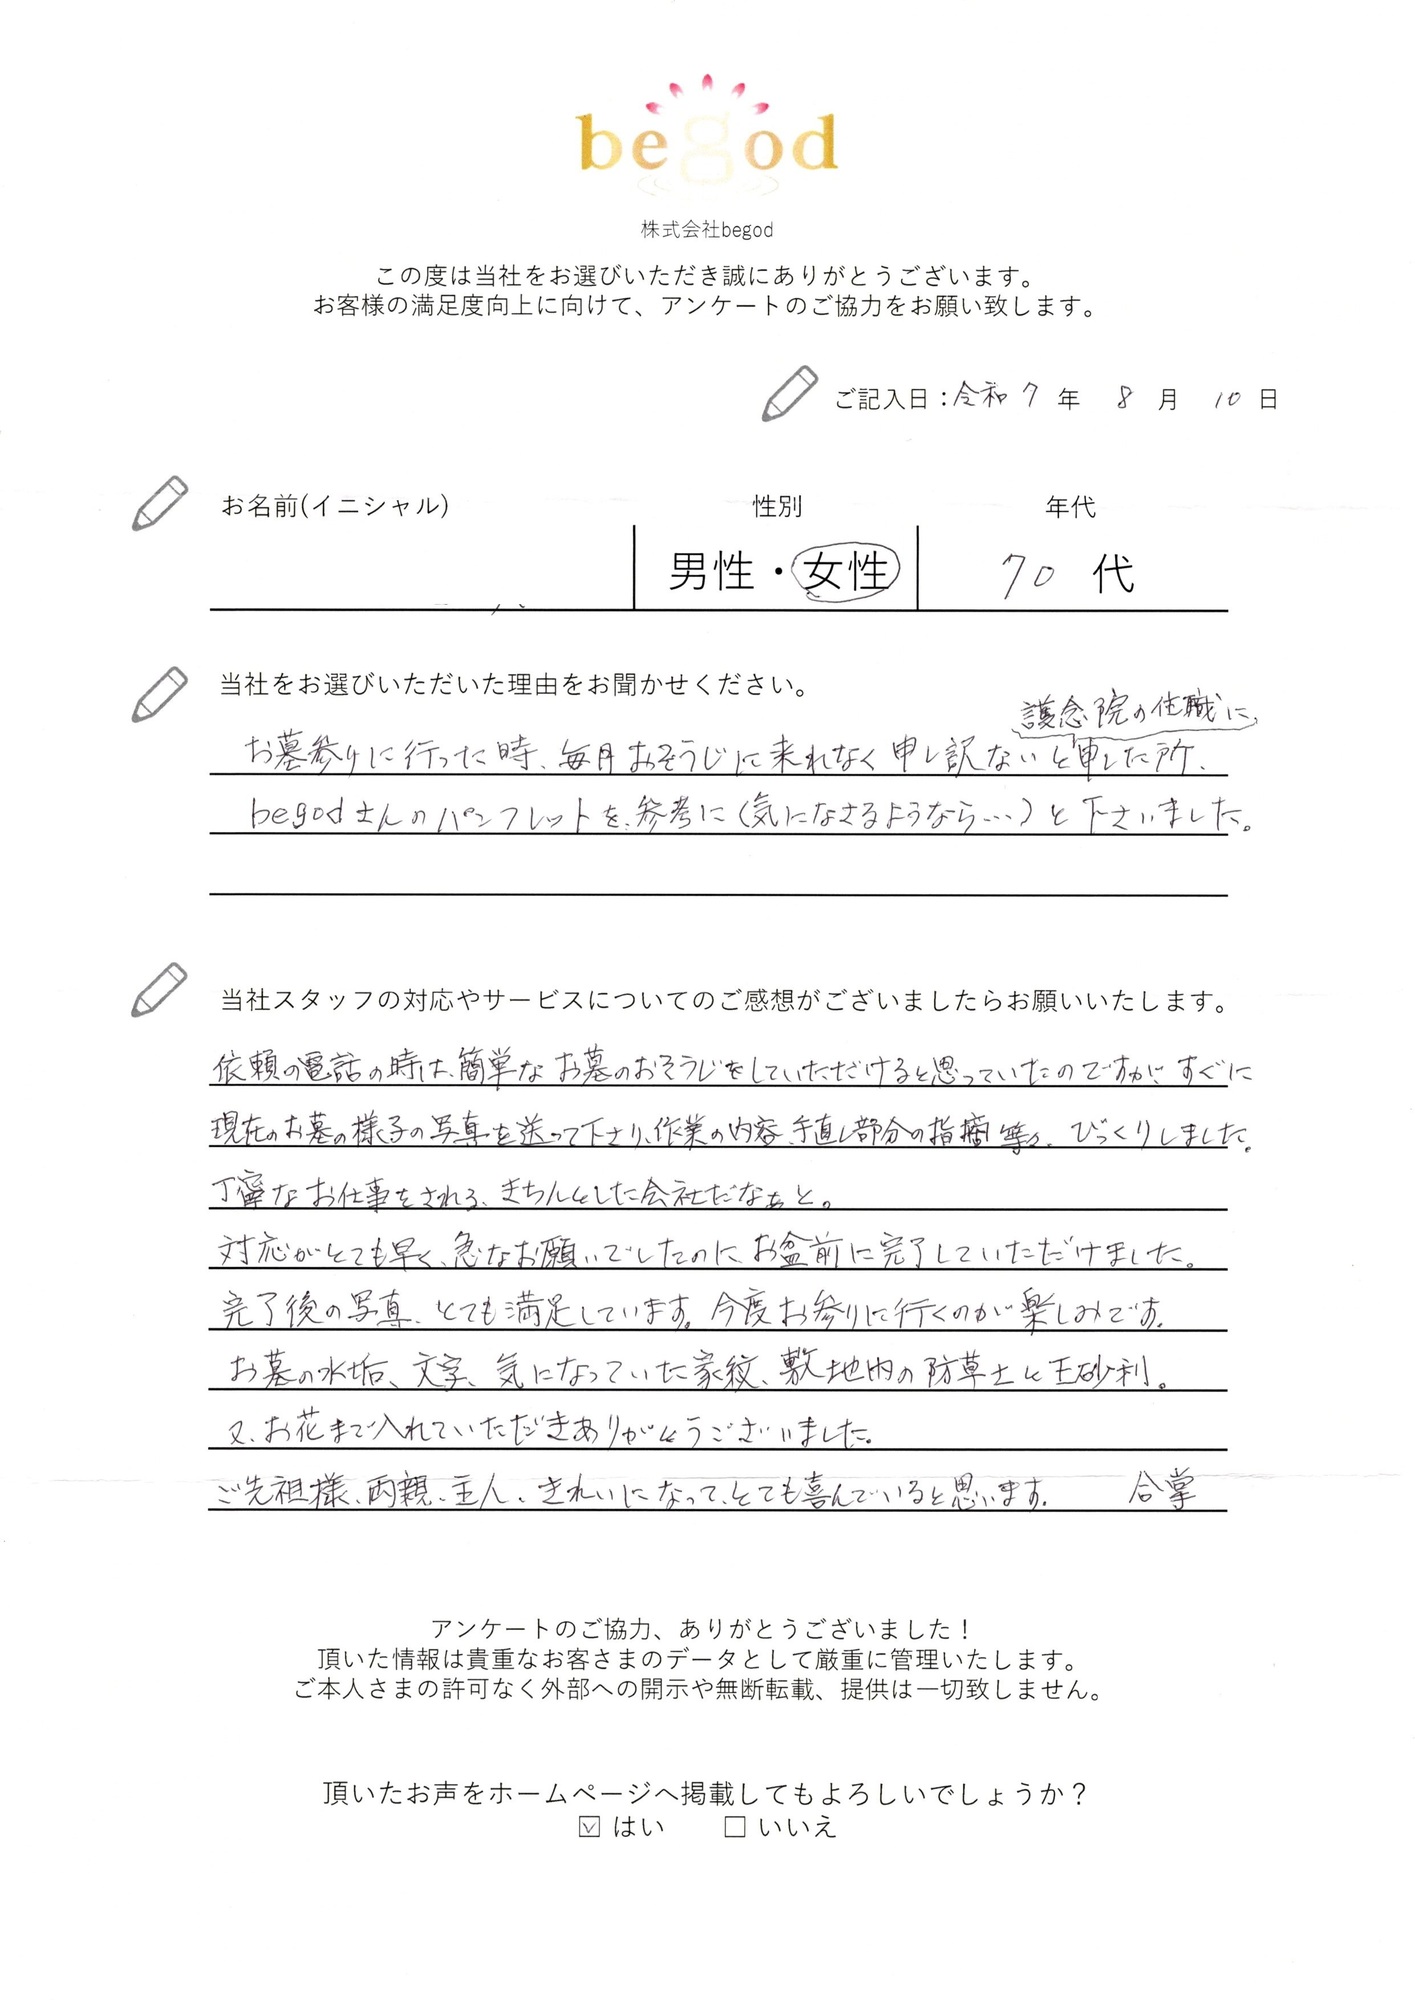 begod
株式会社begod
この度は当社をお選びいただき誠にありがとうございます。
お客様の満足度向上に向けて、アンケートのご協力をお願い致します。
ご記入日：令和 7 年 8 月 10 日
お名前(イニシャル) 性別 年代
男性・女性 70 代
当社をお選びいただいた理由をお聞かせください。
護念院の住職に、
お墓参りに行った時、毎月おそうじに来れなく申し訳ないと申した所、
begodさんのパンフレットを、参考に（気になさるようなら…）と下さいました。
当社スタッフの対応やサービスについてのご感想がございましたらお願いいたします。
依頼の電話の時は、簡単なお墓のおそうじをしていただけると思っていたのですが、すぐに
現在のお墓の様子の写真を送って下さり、作業の内容、手直し部分の指摘等々、びっくりしました。
丁寧なお仕事をされる、きちんとした会社だなぁと。
対応がとても早く、急なお願いでしたのに、お盆前に完了していただけました。
完了後の写真、とても満足しています。今度お参りに行くのが楽しみです。
お墓の水垢、文字、気になっていた家紋、敷地内の防草土と玉砂利。
又、お花まで入れていただきありがとうございました。
ご先祖様、両親、主人、きれいになって、とても喜んでいると思います。 合掌
アンケートのご協力、ありがとうございました！
頂いた情報は貴重なお客さまのデータとして厳重に管理いたします。
ご本人さまの許可なく外部への開示や無断転載、提供は一切致しません。
頂いたお声をホームページへ掲載してもよろしいでしょうか？
☑ はい □ いいえ